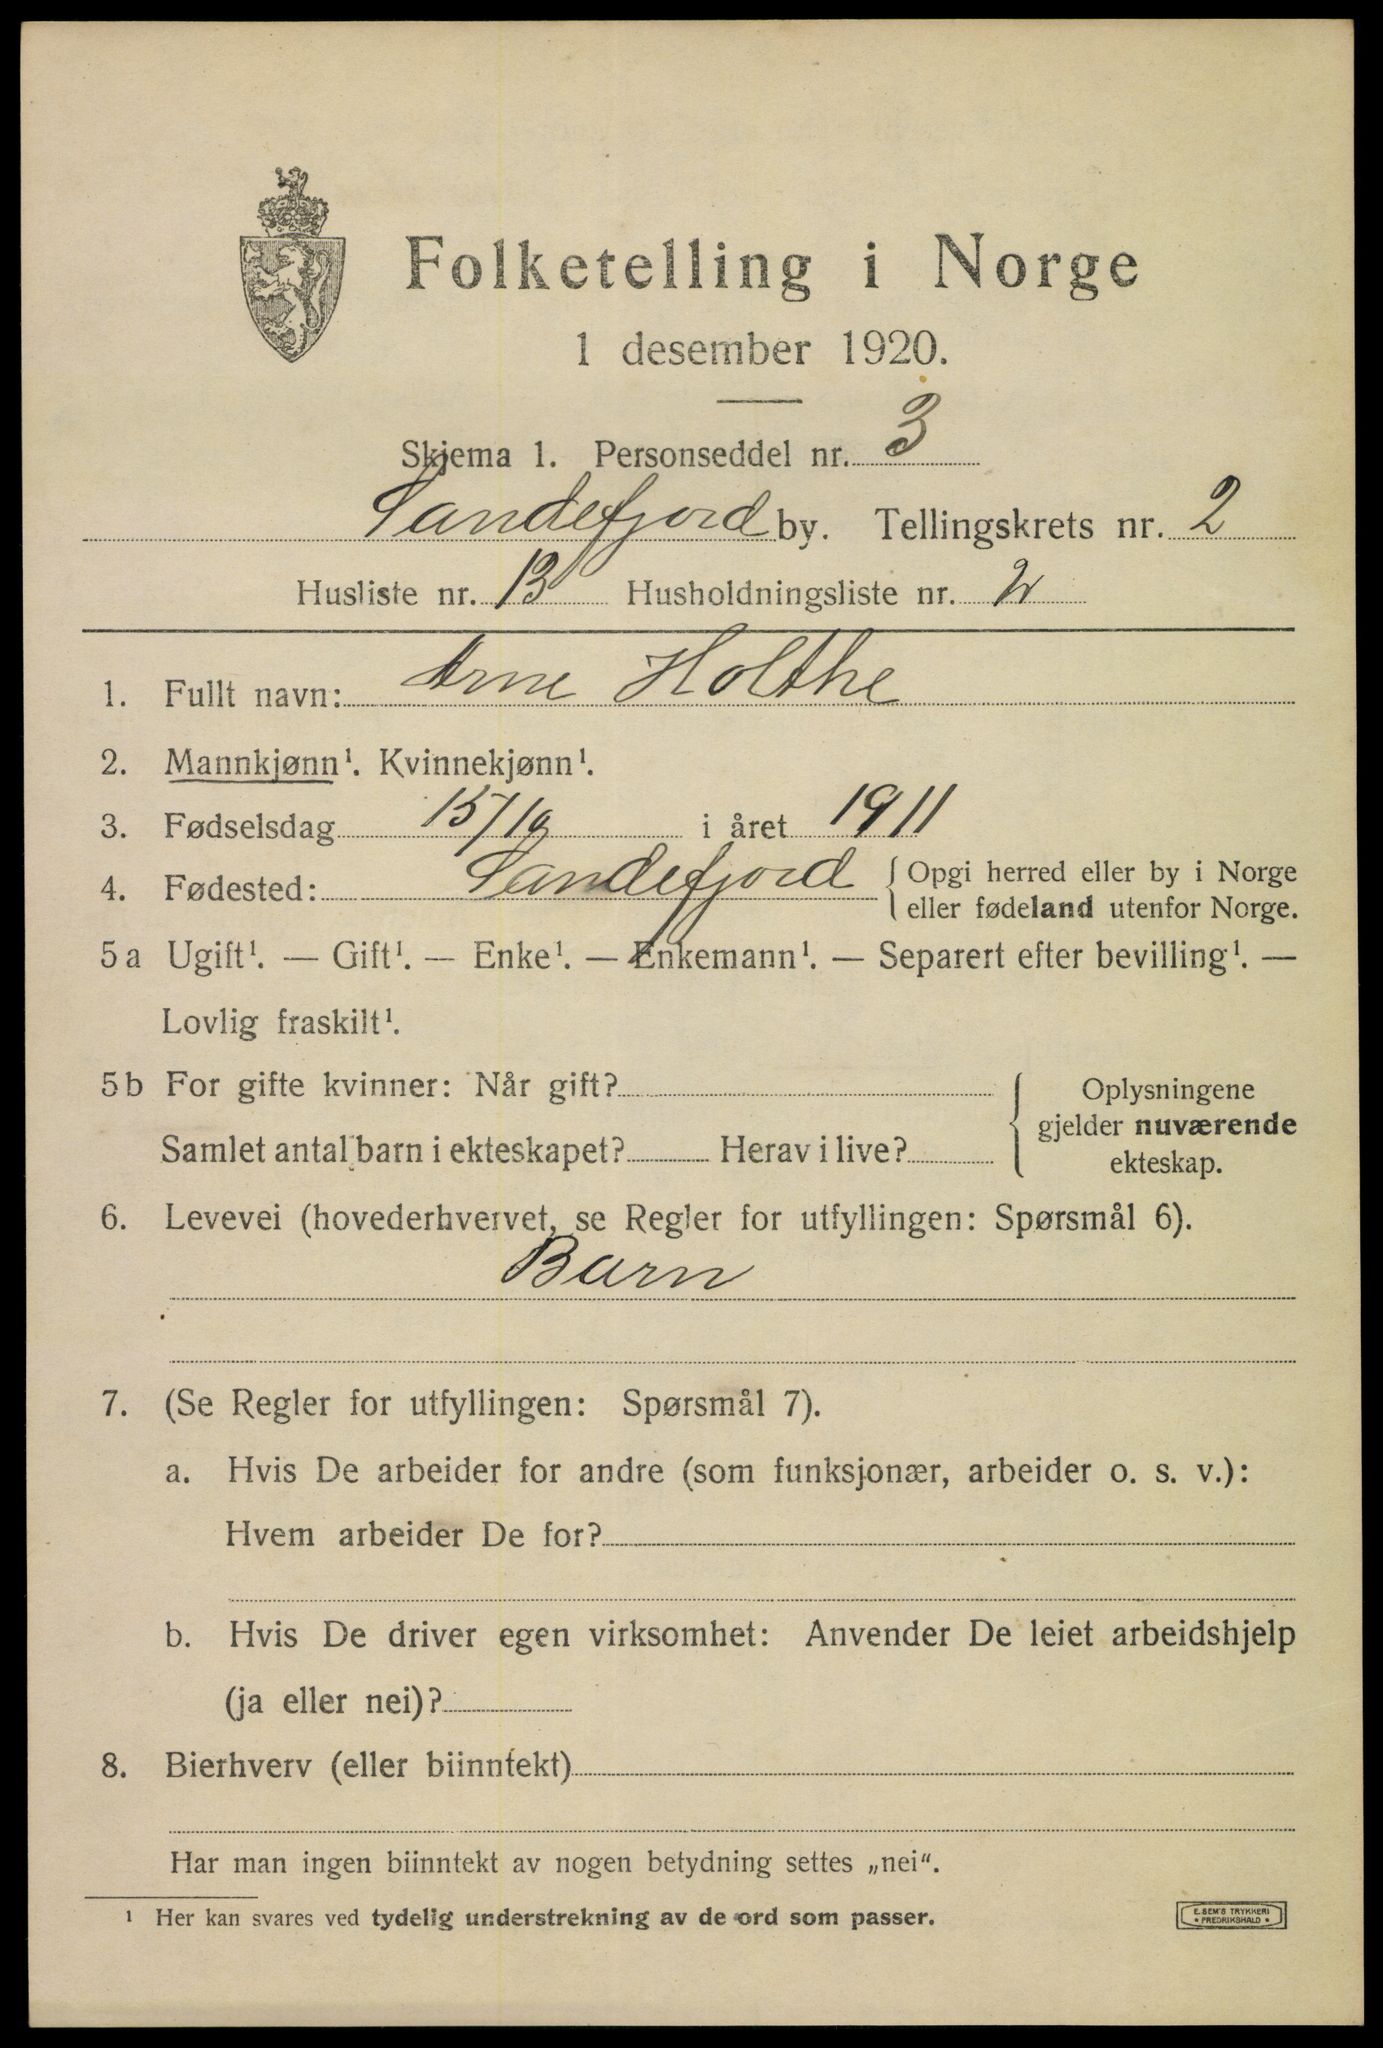 Folketelling i Norge
1 desember 1920.
Skjema 1. Personseddel nr. 3
Sandefjord by. Tellingskrets nr. 2
Husliste nr. 13 Husholdningsliste nr. 2
1. Fullt navn: Arne Holthe
2. Mannkjønn¹. Kvinnekjønn¹.
3. Fødselsdag 15/10 i året 1911
4. Fødested: Sandefjord { Opgi herred eller by i Norge
eller fødeland utenfor Norge.
5 a Ugift¹. — Gift¹. — Enke¹. — Enkemann¹. — Separert efter bevilling¹. —
Lovlig fraskilt¹.
5 b For gifte kvinner: Når gift?
Samlet antal barn i ekteskapet? Herav i live?
{ Oplysningene
gjelder nuværende
ekteskap.
6. Levevei (hovederhvervet, se Regler for utfyllingen: Spørsmål 6).
Barn
7. (Se Regler for utfyllingen: Spørsmål 7).
a. Hvis De arbeider for andre (som funksjonær, arbeider o. s. v.):
Hvem arbeider De for?
b. Hvis De driver egen virksomhet: Anvender De leiet arbeidshjelp
(ja eller nei)?
8. Bierhverv (eller biinntekt)
Har man ingen biinntekt av nogen betydning settes „nei“.
¹ Her kan svares ved tydelig understrekning av de ord som passer.
E. SEM'S TRYKKERI
* FREDRIKSHALD *